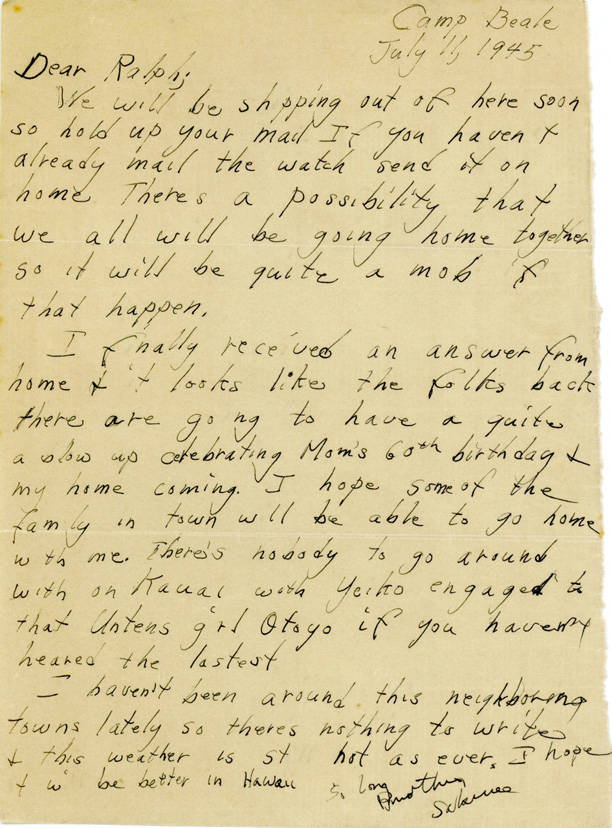 Camp Beale
July 11, 1945
Dear Ralph;
We will be shpping out of here soon
so hold up your mail If you haven't
already mail the watch send it on
home There's a possibility that
we all will be going home together
so it will be quite a mob if
that happen.
I finally received an answer from
home & it looks like the folks back
there are going to have a quite
a blow up celebrating Mom's 60th birthday &
my home coming. I hope some of the
family in town will be able to go home
with me. There's nobody to go around
with on Kauai with Yeiko engaged to
that Untens girl Otoyo if you haven't
heared the lastest
I haven't been around this neighboring
towns lately so theres nothing to write
& this weather is st hot as ever. I hope
be better in Hawaii
So long